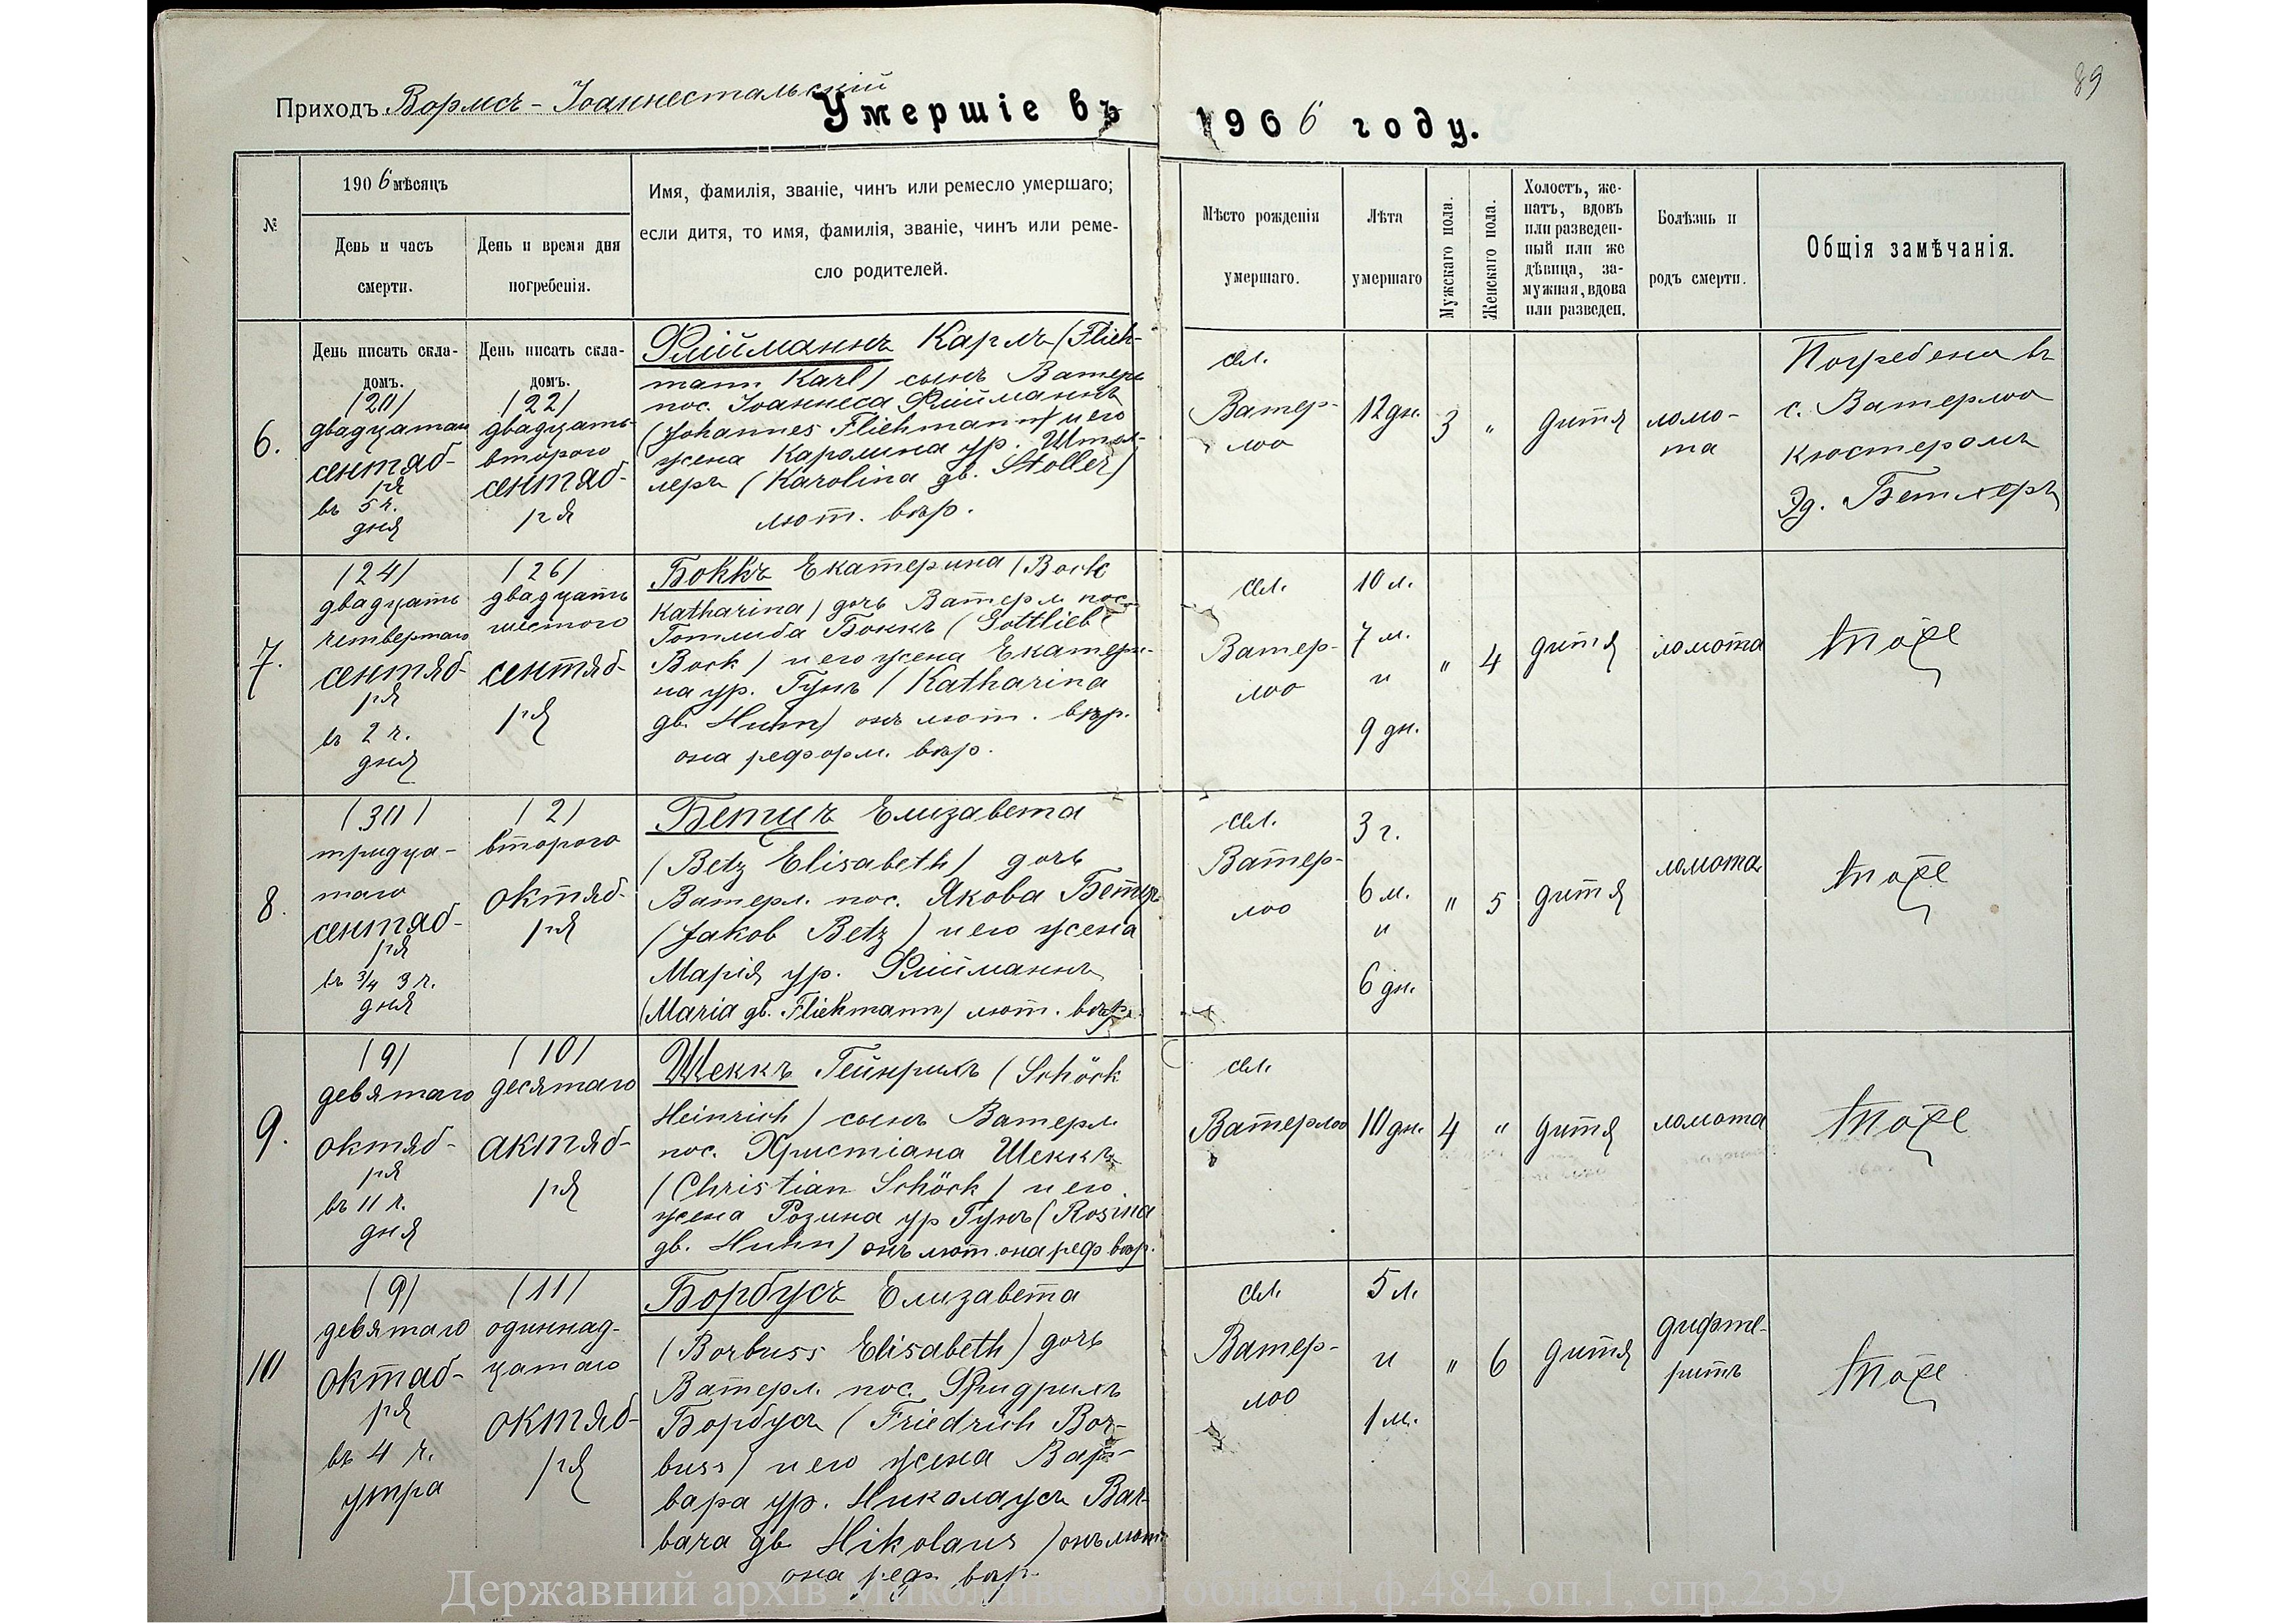 89
Приходъ Вормсъ-Іоаннестальскій
Умершіе въ 1906 году.
№
1906 мѣсяцъ
День и часъ
смерти.
День и время дня
погребенія.
Имя, фамилія, званіе, чинъ или ремесло умершаго;
если дитя, то имя, фамилія, званіе, чинъ или реме-
сло родителей.
Мѣсто рожденія
умершаго.
Лѣта
умершаго
Мужскаго пола.
Женскаго пола.
Холостъ, же-
натъ, вдовъ
или разведен-
ный или же
дѣвица, за-
мужняя, вдова
или разведен.
Болѣзнь и
родъ смерти.
Общія замѣчанія.
6.
День писать скла-
домъ.
/20/
двадцатаго
сентяб-
ря
въ 5 ч.
дня
День писать скла-
домъ.
/22/
двадцать
второго
сентяб-
ря
Флійманнъ Карлъ (Flieh-
mann Karl) сынъ Ватерл
пос. Іоаннеса Флійманнъ
(Johannes Fliehmann) и его
жена Каролина ур. Штол-
леръ (Karolina gb. Stoller)
лют. вѣр.
сел.
Ватер-
лоо
12 дн.
3
"
дитя
ломо-
та
Погребена въ
с. Ватерлоо
кюстеромъ
Эд. Бетхеръ
7.
/24/
двадцать
четвертаго
сентяб-
ря
въ 2 ч.
дня
/26/
двадцать
шестого
сентяб-
ря
Боккъ Екатерина (Bock
Katharina) дочь Ватерл пос.
Готлиба Боккъ (Gottlieb
Bock) и его жена Екатери-
на ур. Гунъ (Katharina
gb. Huhn) онъ лют. вѣр.
она реформ. вѣр.
сел.
Ватер-
лоо
10 л.
7 м.
и
9 дн.
"
4
дитя
ломота
тоже
8.
/30/
тридца-
таго
сентяб-
ря
въ 3/4 3 ч.
дня
/2/
второго
октяб-
ря
Бетцъ Елизавета
(Betz Elisabeth) дочь
Ватерл. пос. Якова Бетцъ
(Jakob Betz) и его жена
Марія ур. Флійманнъ
(Maria gb. Fliehmann) лют. вѣр.
сел.
Ватер-
лоо
3 г.
6 м.
и
6 дн.
"
5
дитя
ломота
тоже
9.
/9/
девятаго
октяб-
ря
въ 11 ч.
дня
/10/
десятаго
актяб-
ря
Шеккъ Гейнрихъ (Schöck
Heinrich) сынъ Ватерл.
пос. Христіана Шеккъ
(Christian Schöck) и его
жена Розина ур Гунъ (Rosina
gb. Huhn) онъ лют. она реф вѣр.
сел.
Ватерлоо
10 дн.
4
"
дитя
ломота
тоже
10
/9/
девятаго
октяб-
ря
въ 4 ч.
утра
/11/
одиннад-
цатаго
октяб-
ря
Борбусъ Елизавета
(Borbuss Elisabeth) дочь
Ватерл. пос. Фридрихъ
Борбусъ (Friedrich Bor-
buss) и его жена Вар-
вара ур. Николаусъ Bar-
bara gb Nikolaus) онъ лют.
она реф. вѣр.
сел.
Ватер-
лоо
5 л.
и
1 м.
"
6
дитя
дифте-
ритъ
тоже
Державний архів Миколаївської області, ф.484, оп.1, спр.2359